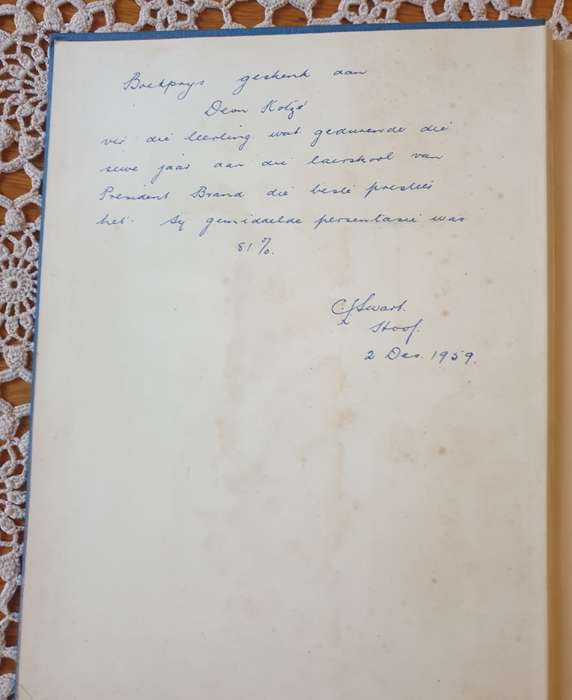 Boekprys geskenk aan
Deon Kotzé
vir die leerling wat gedurende die
sewe jaar aan die laerskool van
President Brand die beste presteer
het. Sy gemiddelde persentasie was
81%.
C J Swart.
Hoof.
2 Des. 1959.